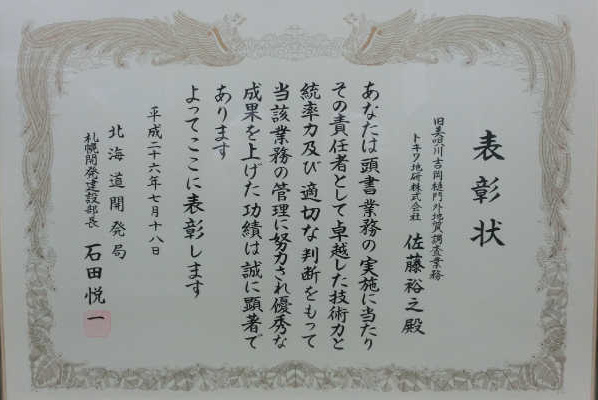 表彰状
旧美唄川吉岡樋門外地質調査業務
トキワ地研株式会社
佐藤裕之殿
あなたは頭書業務の実施に当たり
その責任者として卓越した技術力と
統率力及び適切な判断をもって
当該業務の管理に努力され優秀な
成果を上げた功績は誠に顕著で
あります
よってここに表彰します
平成二十六年七月十八日
北海道開発局
札幌開発建設部長 石田悦一